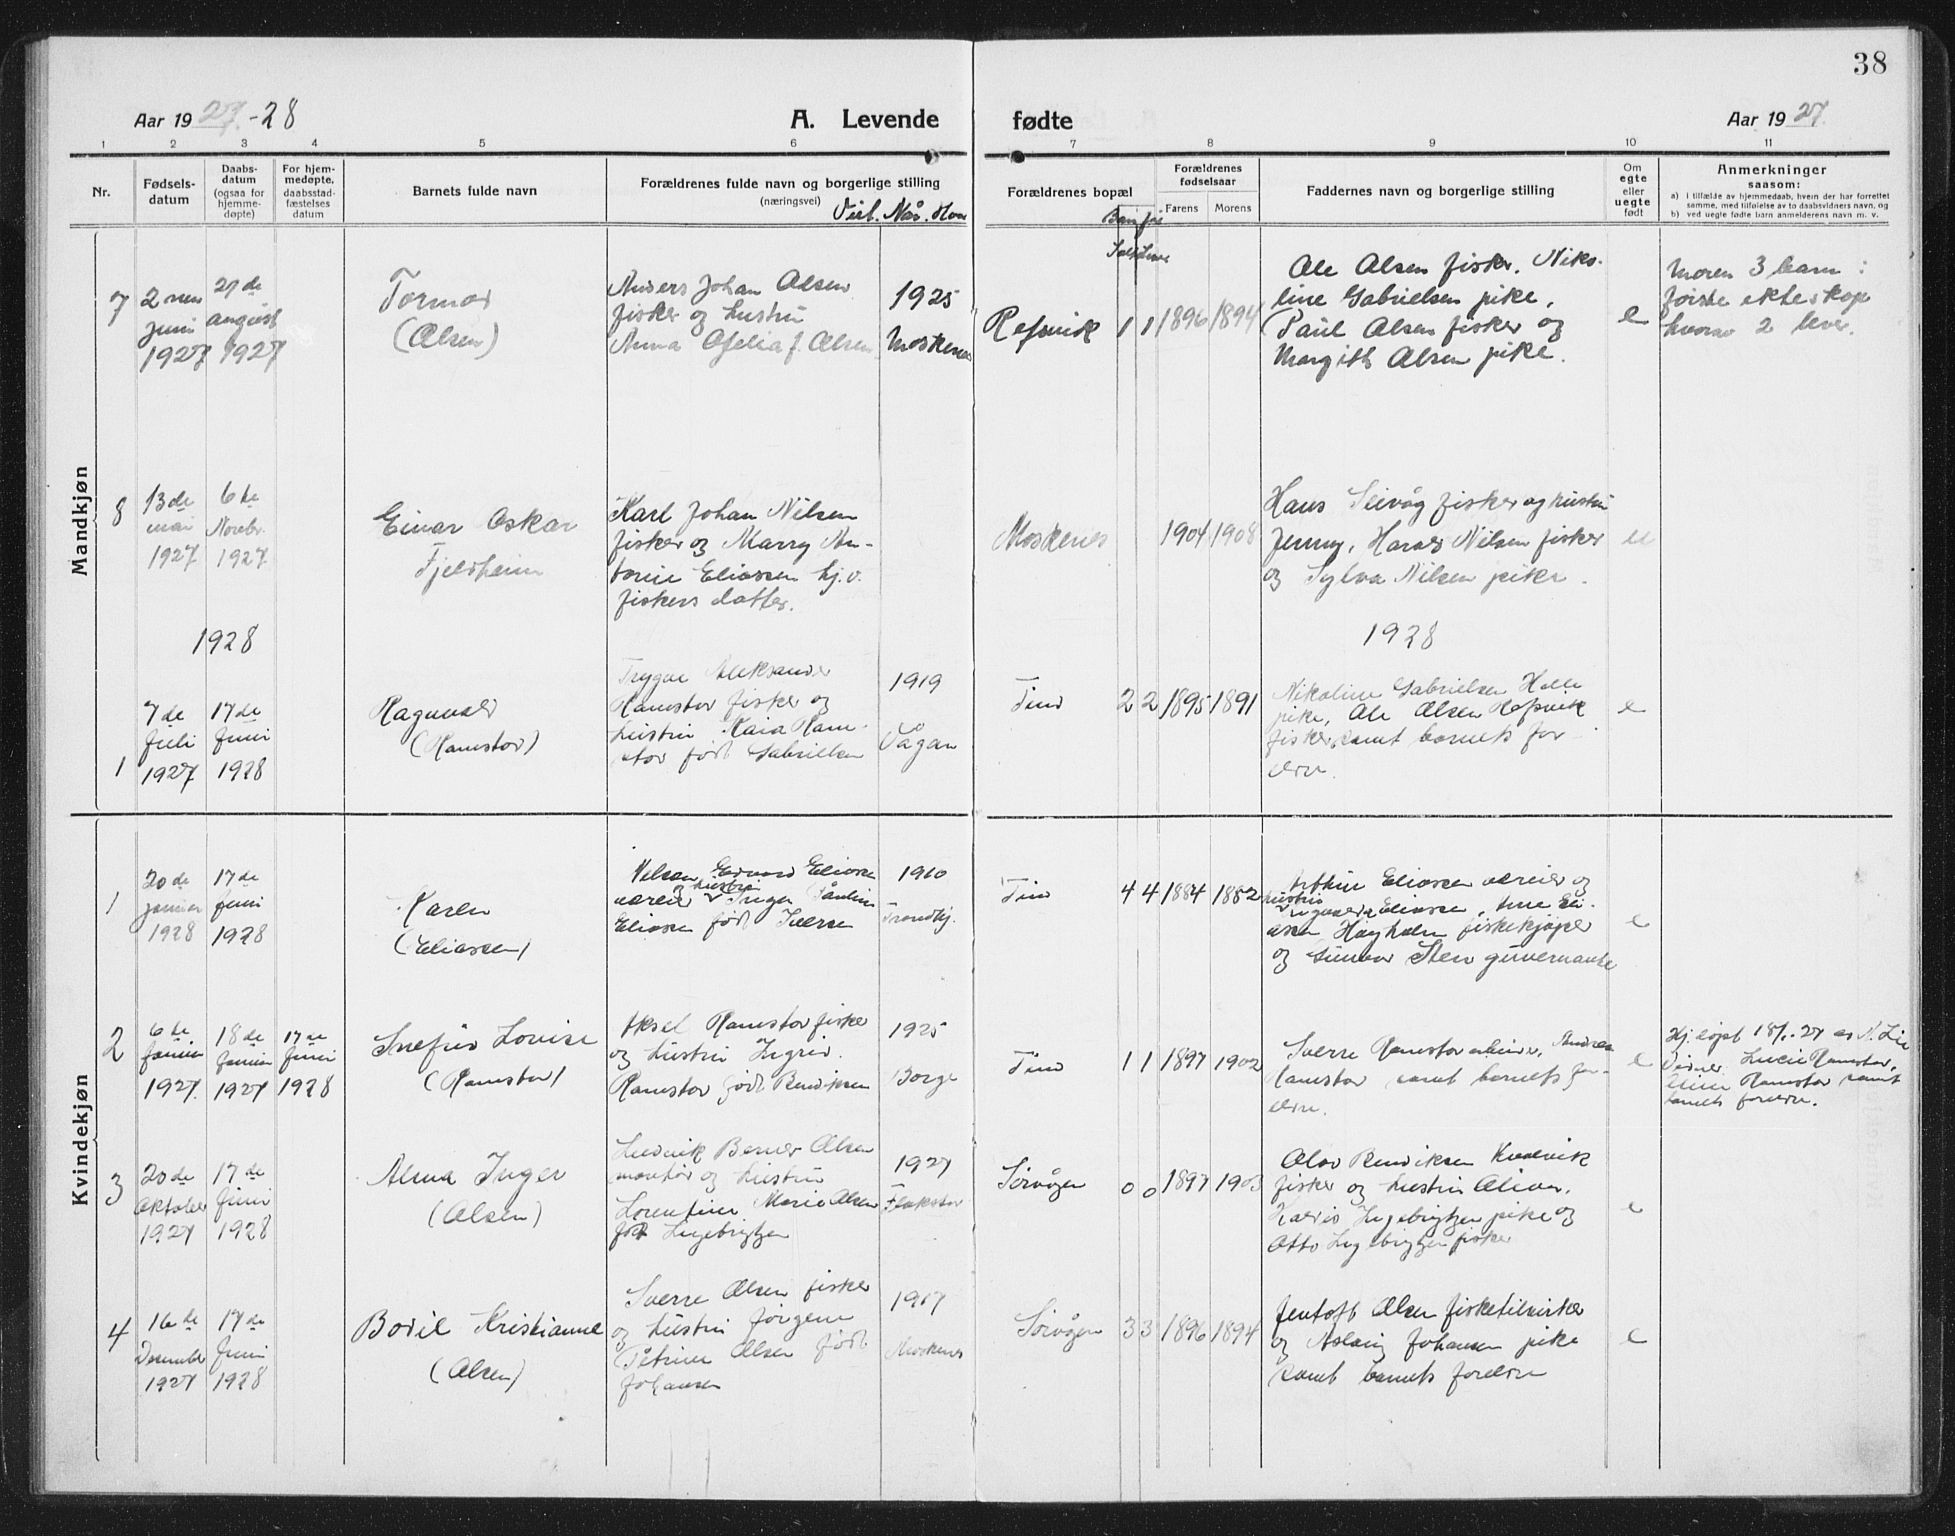 38
Aar 1927-28
A. Levende
fødte
Aar 1927
1 2 3 4 5 6 7 8 9 10 11
Nr.
Fødsels-
datum
Daabs-
datum
(ogsaa for
hjemme-
døpte)
For hjem-
medøpte,
daabsstad-
fæstelses
datum
Barnets fulde navn
Forældrenes fulde navn og borgerlige stilling
(næringsvei)
Viel. Når. Hvor
Forældrenes bopæl
Barn før
Forældrenes
fødselsaar
Farens Morens
Faddernes navn og borgerlige stilling
Om
egte
eller
uegte
født
Anmerkninger
saasom:
a) i tilfælde av hjemmedaab, hvem der har forrettet
samme, med tilføielse av to daabsvidners navn, og
b) ved uegte fødte barn anmelderens navn m. v.
Mandkjøn
7
juni
1927
august
1927
Tormod
(Olsen)
Anders Johan Olsen
fisker og hustru
Anna Ofelia f. Olsen
1925
Moskenes
Refsvik
1 1 1896 1894
Ole Olsen fisker. Niko-
line Gabrielsen pike,
Paul Olsen fisker og
Margith Olsen pike.
e
Moren 3 barn i
første ekteskap
hvorav 2 lever.
8
13de
mai
1927
6te
Novbr.
1927
Einar Oskar
Fjeldheim
Karl Johan Nilsen
fisker og Marry An-
tonie Eliassen hj. v.
fiskers datter.
Moskenes
1904 1908
Hans Seivåg fisker og hustru
Jenny, Harald Nilsen fisker
og Sylva Nilsen pike.
ue
1928
1928
1
7de
juli
1927
17de
juni
1928
Ragnvald
(Ramstad)
Trygve Aleksander
Ramstad fisker og
hustru Kaia Ram-
stad født Gabrielsen
1919
Vågan
Tind
2 2 1895 1891
Nikoline Gabrielsen Helle
pike, Ole Olsen Refsvik
fisker, samt barnets for-
eldre.
e
Kvindekjøn
1
20de
januar
1928
17de
juni
1928
Karen
(Eliassen)
Nelson Edvard Eliassen
væreier og hustru Inger Pauline
Eliassen født Iversen
1910
Trondhj.
Tind
4 4 1884 1882
Arthur Eliassen væreier og
hustru
Eliassen, Arne Eli-
assen Høgholm fiskekjøper
og Gunvor Sten guvernante
e
2
6te
januar
1927
18de
januar
1927
17de
juni
1928
Snefrid Lovise
(Ramstad)
Aksel Ramstad fisker
og hustru Ingrid
Ramstad født Bendiksen
1925
Borge
Tind
1 1 1897 1902
Sverre Ramstad arbeider, Andrea
Ramstad samt barnets for-
eldre.
e
Hj.døpt 18/1.27 av N. Lie
Vidner Lucie Ramstad,
Ramstad samt
barnets foreldre.
3
20de
Oktober
1927
17de
juni
1928
Alma Inger
(Olsen)
Ludvik Berner Olsen
montør og hustru
Lorentine Marie Olsen
født Ingebrigtsen
1927
Flakstad
Sørvågen
0 0 1897 1903
Olav Bendiksen Kvalvik
fisker og hustru Oliva,
Ingebrigtsen pike og
Otto Ingebrigtsen fisker
e
4
16de
Desember
1927
17de
juni
1928
Bodil Kristianne
(Olsen)
Sverre Olsen fisker
og hustru Jørgine
Petrine Olsen født
Johansen
1917
Moskenes
Sørvågen
3 3 1896 1894
Jentoft Olsen fisketilvirker
og Aslaug Johansen pike
samt barnets foreldre
e